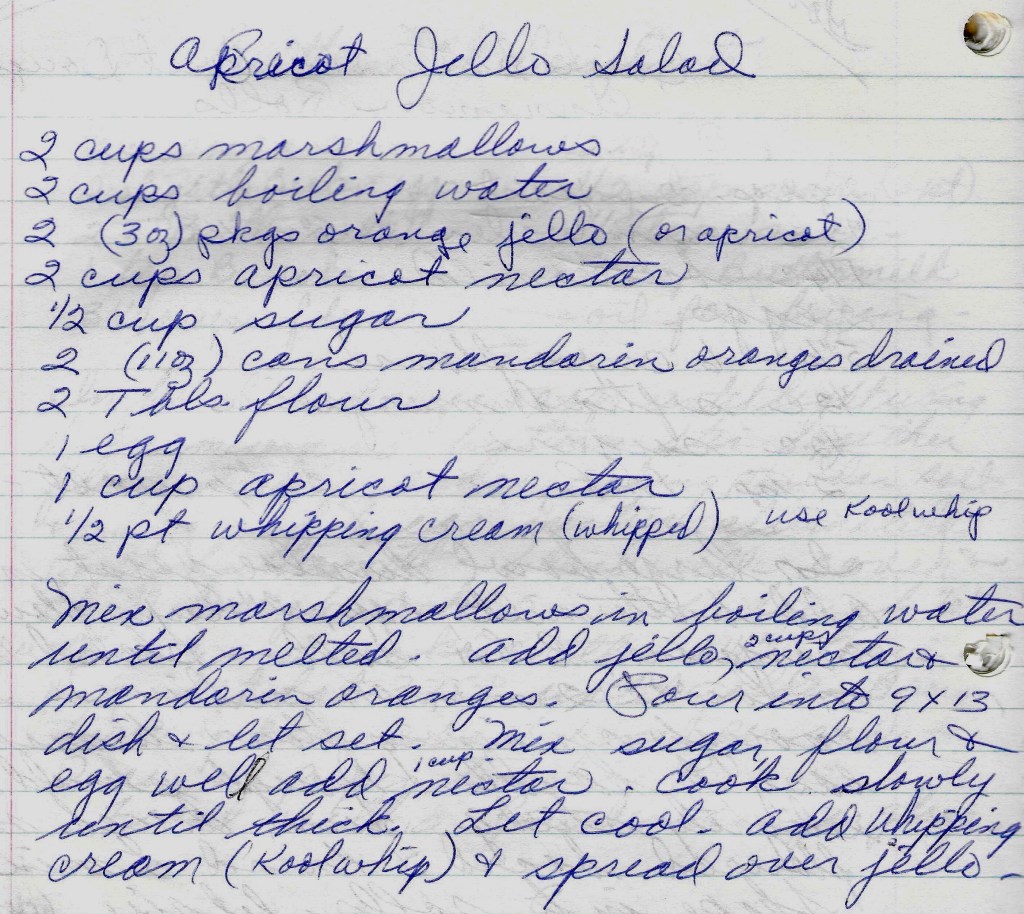 Apricot Jello Salad
2 cups marshmallows
2 cups boiling water
2 (3 oz) pkgs orange jello (or apricot)
2 cups apricot nectar
1/2 cup sugar
2 (11 oz) cans mandarin oranges drained
2 Tbls flour
1 egg
1 cup apricot nectar
1/2 pt whipping cream (whipped) use Koolwhip
Mix marshmallows in boiling water
until melted. Add jello, 2 cups nectar &
mandarin oranges. Pour into 9 x 13
dish & let set. Mix sugar, flour &
egg well add 1 cup nectar. Cook slowly
until thick. Let cool. Add whipping
cream (Koolwhip) & spread over jello.